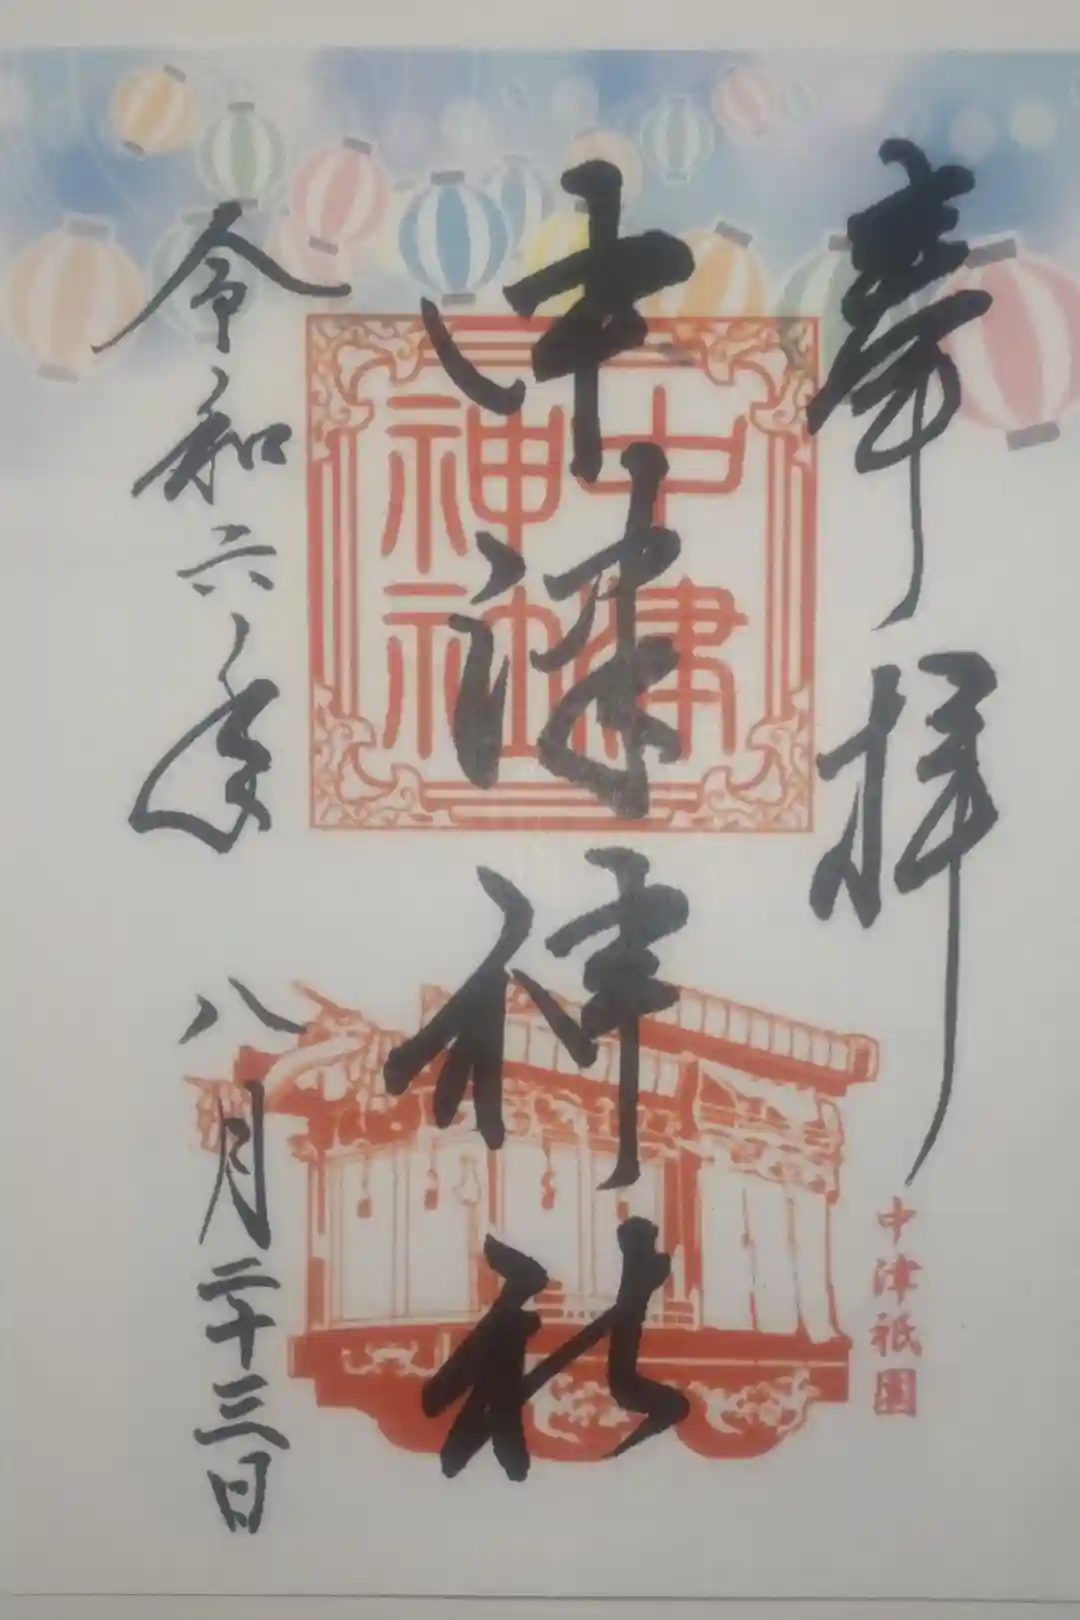 奉拝
中津祇園
中津神社
中津
神社
令和六年 八月二十三日